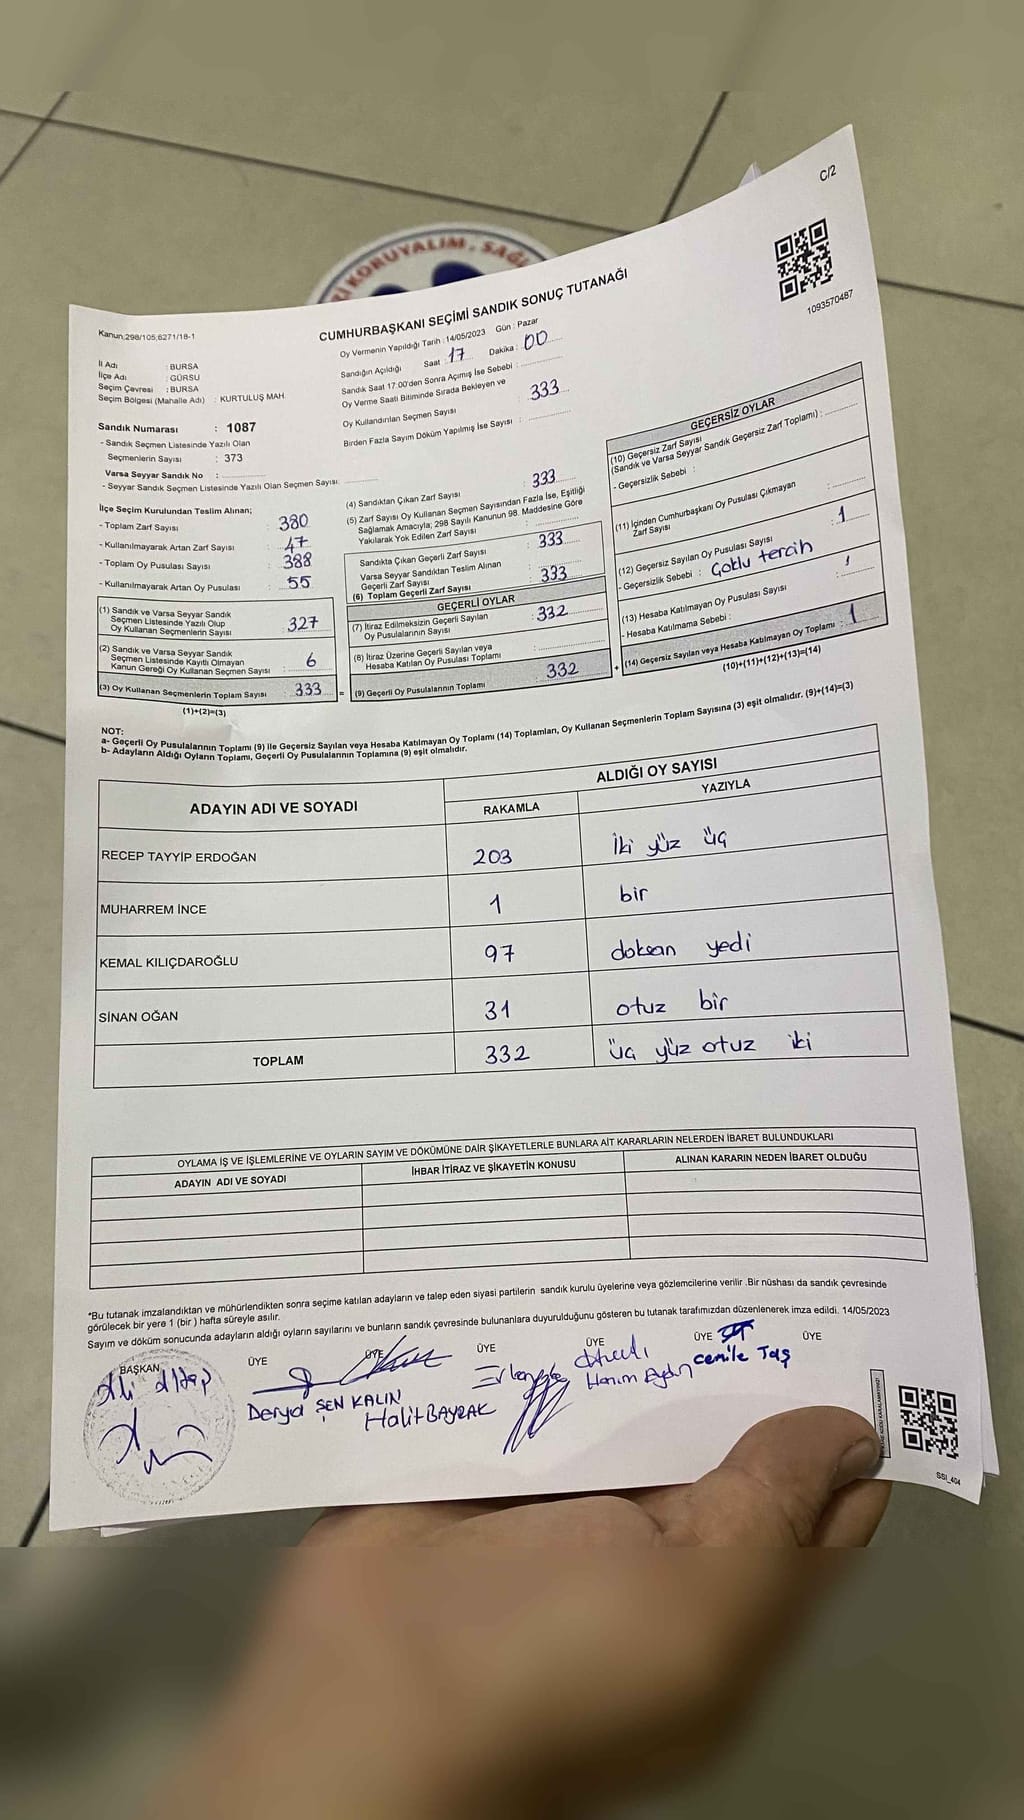 C/2
Zİ KORUYALIM, SAĞL
1093570487
Kanun:298/105;6271/18-1
CUMHURBAŞKANI SEÇİMİ SANDIK SONUÇ TUTANAĞI
İl Adı : BURSA
İlçe Adı : GÜRSU
Seçim Çevresi : BURSA
Seçim Bölgesi (Mahalle Adı) : KURTULUŞ MAH
Sandık Numarası : 1087
- Sandık Seçmen Listesinde Yazılı Olan
Seçmenlerin Sayısı : 373
Varsa Seyyar Sandık No :
- Seyyar Sandık Seçmen Listesinde Yazılı Olan Seçmen Sayısı:
Oy Vermenin Yapıldığı Tarih : 14/05/2023 Gün : Pazar
Sandığın Açıldığı Saat : 17 Dakika : 00
Sandık Saat 17:00'den Sonra Açımış İse Sebebi :
Oy Verme Saati Bitiminde Sırada Bekleyen ve
Oy Kullandırılan Seçmen Sayısı : 333
Birden Fazla Sayım Döküm Yapılmış İse Sayısı :
İlçe Seçim Kurulundan Teslim Alınan;
- Toplam Zarf Sayısı : 380
- Kullanılmayarak Artan Zarf Sayısı : 47
- Toplam Oy Pusulası Sayısı : 388
- Kullanılmayarak Artan Oy Pusulası : 55
(1) Sandık ve Varsa Seyyar Sandık
Seçmen Listesinde Yazılı Olup
Oy Kullanan Seçmenlerin Sayısı : 327
(2) Sandık ve Varsa Seyyar Sandık
Seçmen Listesinde Kayıtlı Olmayan
Kanun Gereği Oy Kullanan Seçmen Sayısı : 6
(3) Oy Kullanan Seçmenlerin Toplam Sayısı : 333 =
(1)+(2)=(3)
(4) Sandıktan Çıkan Zarf Sayısı : 333
(5) Zarf Sayısı Oy Kullanan Seçmen Sayısından Fazla İse, Eşitliği
Sağlamak Amacıyla; 298 Sayılı Kanunun 98. Maddesine Göre
Yakılarak Yok Edilen Zarf Sayısı :
Sandıkta Çıkan Geçerli Zarf Sayısı : 333
Varsa Seyyar Sandıktan Teslim Alınan
Geçerli Zarf Sayısı :
(6) Toplam Geçerli Zarf Sayısı : 333
GEÇERLİ OYLAR
(7) İtiraz Edilmeksizin Geçerli Sayılan
Oy Pusulalarının Sayısı : 332
(8) İtiraz Üzerine Geçerli Sayılan veya
Hesaba Katılan Oy Pusulası Toplamı :
(9) Geçerli Oy Pusulalarının Toplamı : 332 +
GEÇERSİZ OYLAR
(10) Geçersiz Zarf Sayısı
(Sandık ve Varsa Seyyar Sandık Geçersiz Zarf Toplamı) :
- Geçersizlik Sebebi :
(11) İçinden Cumhurbaşkanı Oy Pusulası Çıkmayan
Zarf Sayısı :
(12) Geçersiz Sayılan Oy Pusulası Sayısı : 1
- Geçersizlik Sebebi : Çoklu tercih
(13) Hesaba Katılmayan Oy Pusulası Sayısı :
- Hesaba Katılmama Sebebi :
(14) Geçersiz Sayılan veya Hesaba Katılmayan Oy Toplamı : 1
(10)+(11)+(12)+(13)=(14)
NOT:
a- Geçerli Oy Pusulalarının Toplamı (9) ile Geçersiz Sayılan veya Hesaba Katılmayan Oy Toplamı (14) Toplamları, Oy Kullanan Seçmenlerin Toplam Sayısına (3) eşit olmalıdır. (9)+(14)=(3)
b- Adayların Aldığı Oyların Toplamı, Geçerli Oy Pusulalarının Toplamına (9) eşit olmalıdır.
ADAYIN ADI VE SOYADI
ALDIĞI OY SAYISI
RAKAMLA YAZIYLA
RECEP TAYYİP ERDOĞAN 203 iki yüz üç
MUHARREM İNCE 1 bir
KEMAL KILIÇDAROĞLU 97 doksan yedi
SİNAN OĞAN 31 otuz bir
TOPLAM 332 üç yüz otuz iki
OYLAMA İŞ VE İŞLEMLERİNE VE OYLARIN SAYIM VE DÖKÜMÜNE DAİR ŞİKAYETLERLE BUNLARA AİT KARARLARIN NELERDEN İBARET BULUNDUKLARI
ADAYIN ADI VE SOYADI İHBAR İTİRAZ VE ŞİKAYETİN KONUSU ALINAN KARARIN NEDEN İBARET OLDUĞU
*Bu tutanak imzalandıktan ve mühürlendikten sonra seçime katılan adayların ve talep eden siyasi partilerin sandık kurulu üyelerine veya gözlemcilerine verilir .Bir nüshası da sandık çevresinde
görülecek bir yere 1 (bir ) hafta süreyle asılır.
Sayım ve döküm sonucunda adayların aldığı oyların sayılarını ve bunların sandık çevresinde bulunanlara duyurulduğunu gösteren bu tutanak tarafımızdan düzenlenerek imza edildi. 14/05/2023
BAŞKAN ÜYE ÜYE ÜYE ÜYE ÜYE ÜYE
Derya ŞEN KALIN
Halit BAYRAK
Hanım Aydın
Cemile Taş
SSI_404